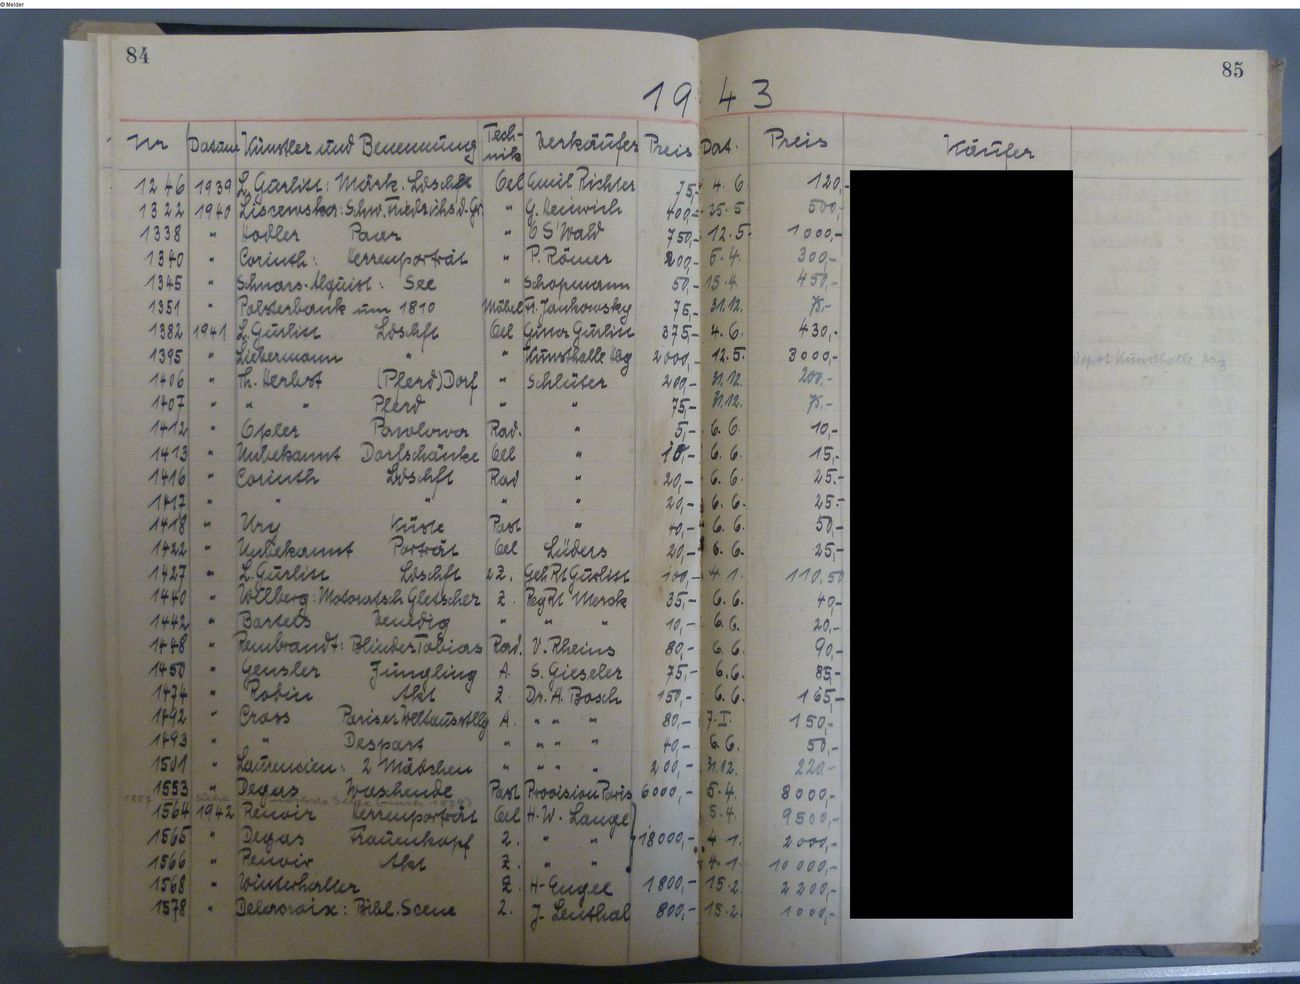 © Melder
84
85
1943
Nr Datum Künstler und Benennung Technik Verkäufer Preis Dat. Preis Käufer
1246 1939 L. Gurlitt: Märk. Ldschft Oel Emil Richter 75,- 4.6. 120,-
1322 1940 Liscewska: Schw. Friedrichs d. Gr. " G. Heinrich 400,- 25.5 500,-
1338 " Hodler Paar " 750,- 12.5. 1000,-
1340 " Corinth: Herrenporträt " P. Römer 200,- 5.4. 300,-
1345 " Schnars-Alquist: See " Schopmann 50,- 15.4. 450,-
1351 " Polsterbank um 1810 Möbel Fr. Jankowsky 75,- 31.12. 75.-
1382 1941 L. Gurlitt Ldschft Oel Gurlitt 375,- 4.6. 430,-
1395 " Liebermann " " Kunsthalle Hbg 2000,- 12.5. 3000,- Depot Kunsthalle Hbg
1406 " Th. Herbst (Pferd) Dorf " Schlüter 200,- 31.12. 200.-
1407 " " " Pferd " " 75,- 31.12. 75.-
1412 " Opler Pawlowa Rad. " 5,- 6.6. 10,-
1413 " Unbekannt Dorfschänke Oel " 10,- 6.6. 15,-
1416 " Corinth Ldschft Rad " 20,- 6.6. 25.-
1417 " " " " 20,- 6.6. 25.-
1418 " Ury Küste Past " 40,- 6.6. 50,-
1422 " Unbekannt Porträt Oel Lüders 20,- 6.6. 25,-
1427 " L. Gurlitt Ldschft 2Z. Geh Rt Gurlitt 100,- 4.1. 110,50
1440 " Wilberg: Gletscher Z. Reg Rt Merck 35,- 6.6. 40,-
1442 " Bartels Venedig " " " 10,- 6.6. 20,-
1448 " Rembrandt: Blinder Tobias Rad. V. Rheins 80,- 6.6. 90,-
1450 " Gensler Jüngling A. S. Gieseler 75,- 6.6. 85,-
1474 " Rodin Akt Z. Dr. H. Bosch 150,- 6.6. 165,-
1492 " Cross Pariser Weltausstllg A. " " " 80,- 7.I. 150,-
1493 " " Despart " " " " 40,- 6.6. 50,-
1501 " Laurencien: 2 Mädchen " " " " 200,- 31.12. 220.-
1553 " Degas Waschende Past Provision Paris 6000,- 5.4. 8000,-
1557 siehe
1564 1942 Renoir Herrenporträt Oel H. W. Lange 5.4. 9500,-
1565 " Degas Frauenkopf Z. " " 18000,- 4.1. 2000,-
1566 " Renoir Akt Z. " " 4.1. 10000,-
1568 " Winterhalter Z. H. Engel 1800,- 15.2. 2200,-
1578 " Delacroix: Bibl. Scene Z. J. Lenthal 800,- 15.2. 1000,-